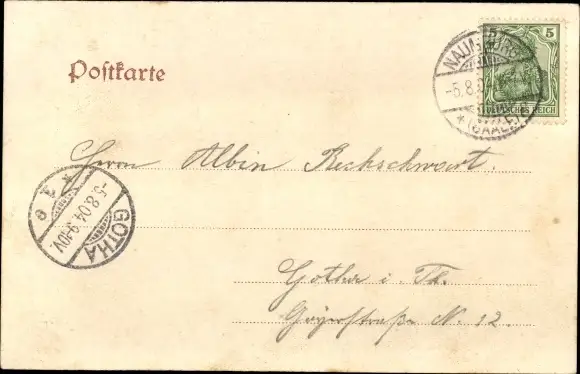 Postkarte
NAUMBURG
-5.8.04
* (SAALE)
5
DEUTSCHES REICH
Herrn Albin
Gotha i. Th.
N. 12.
GOTHA
-5.8.04. 9-10V.
* 1 e